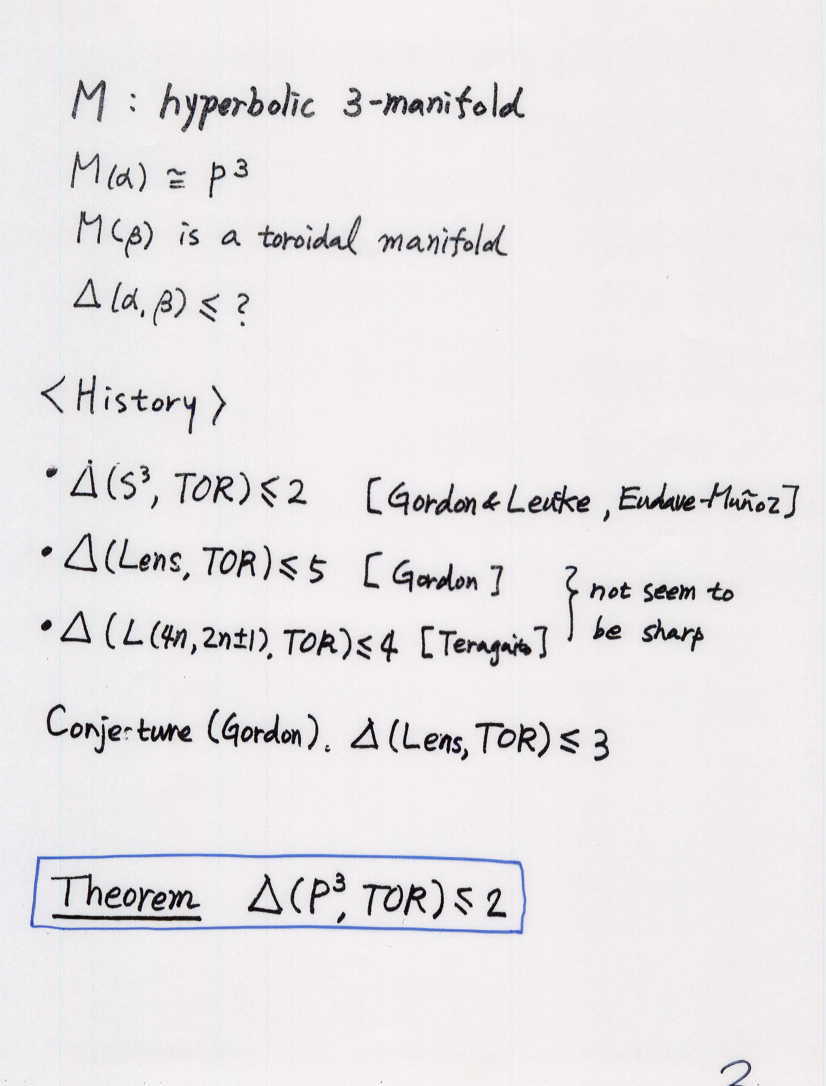 M : hyperbolic 3-manifold
M(α) ≅ P³
M(β) is a toroidal manifold
Δ(α, β) ≤ ?
<History>
• Δ(S³, TOR) ≤ 2 [Gordon & Leuke, Eudave-Muñoz]
• Δ(Lens, TOR) ≤ 5 [Gordon]
• Δ(L(4n, 2n±1), TOR) ≤ 4 [Teragaito]
} not seem to
be sharp
Conjecture (Gordon). Δ(Lens, TOR) ≤ 3
Theorem Δ(P³, TOR) ≤ 2
2